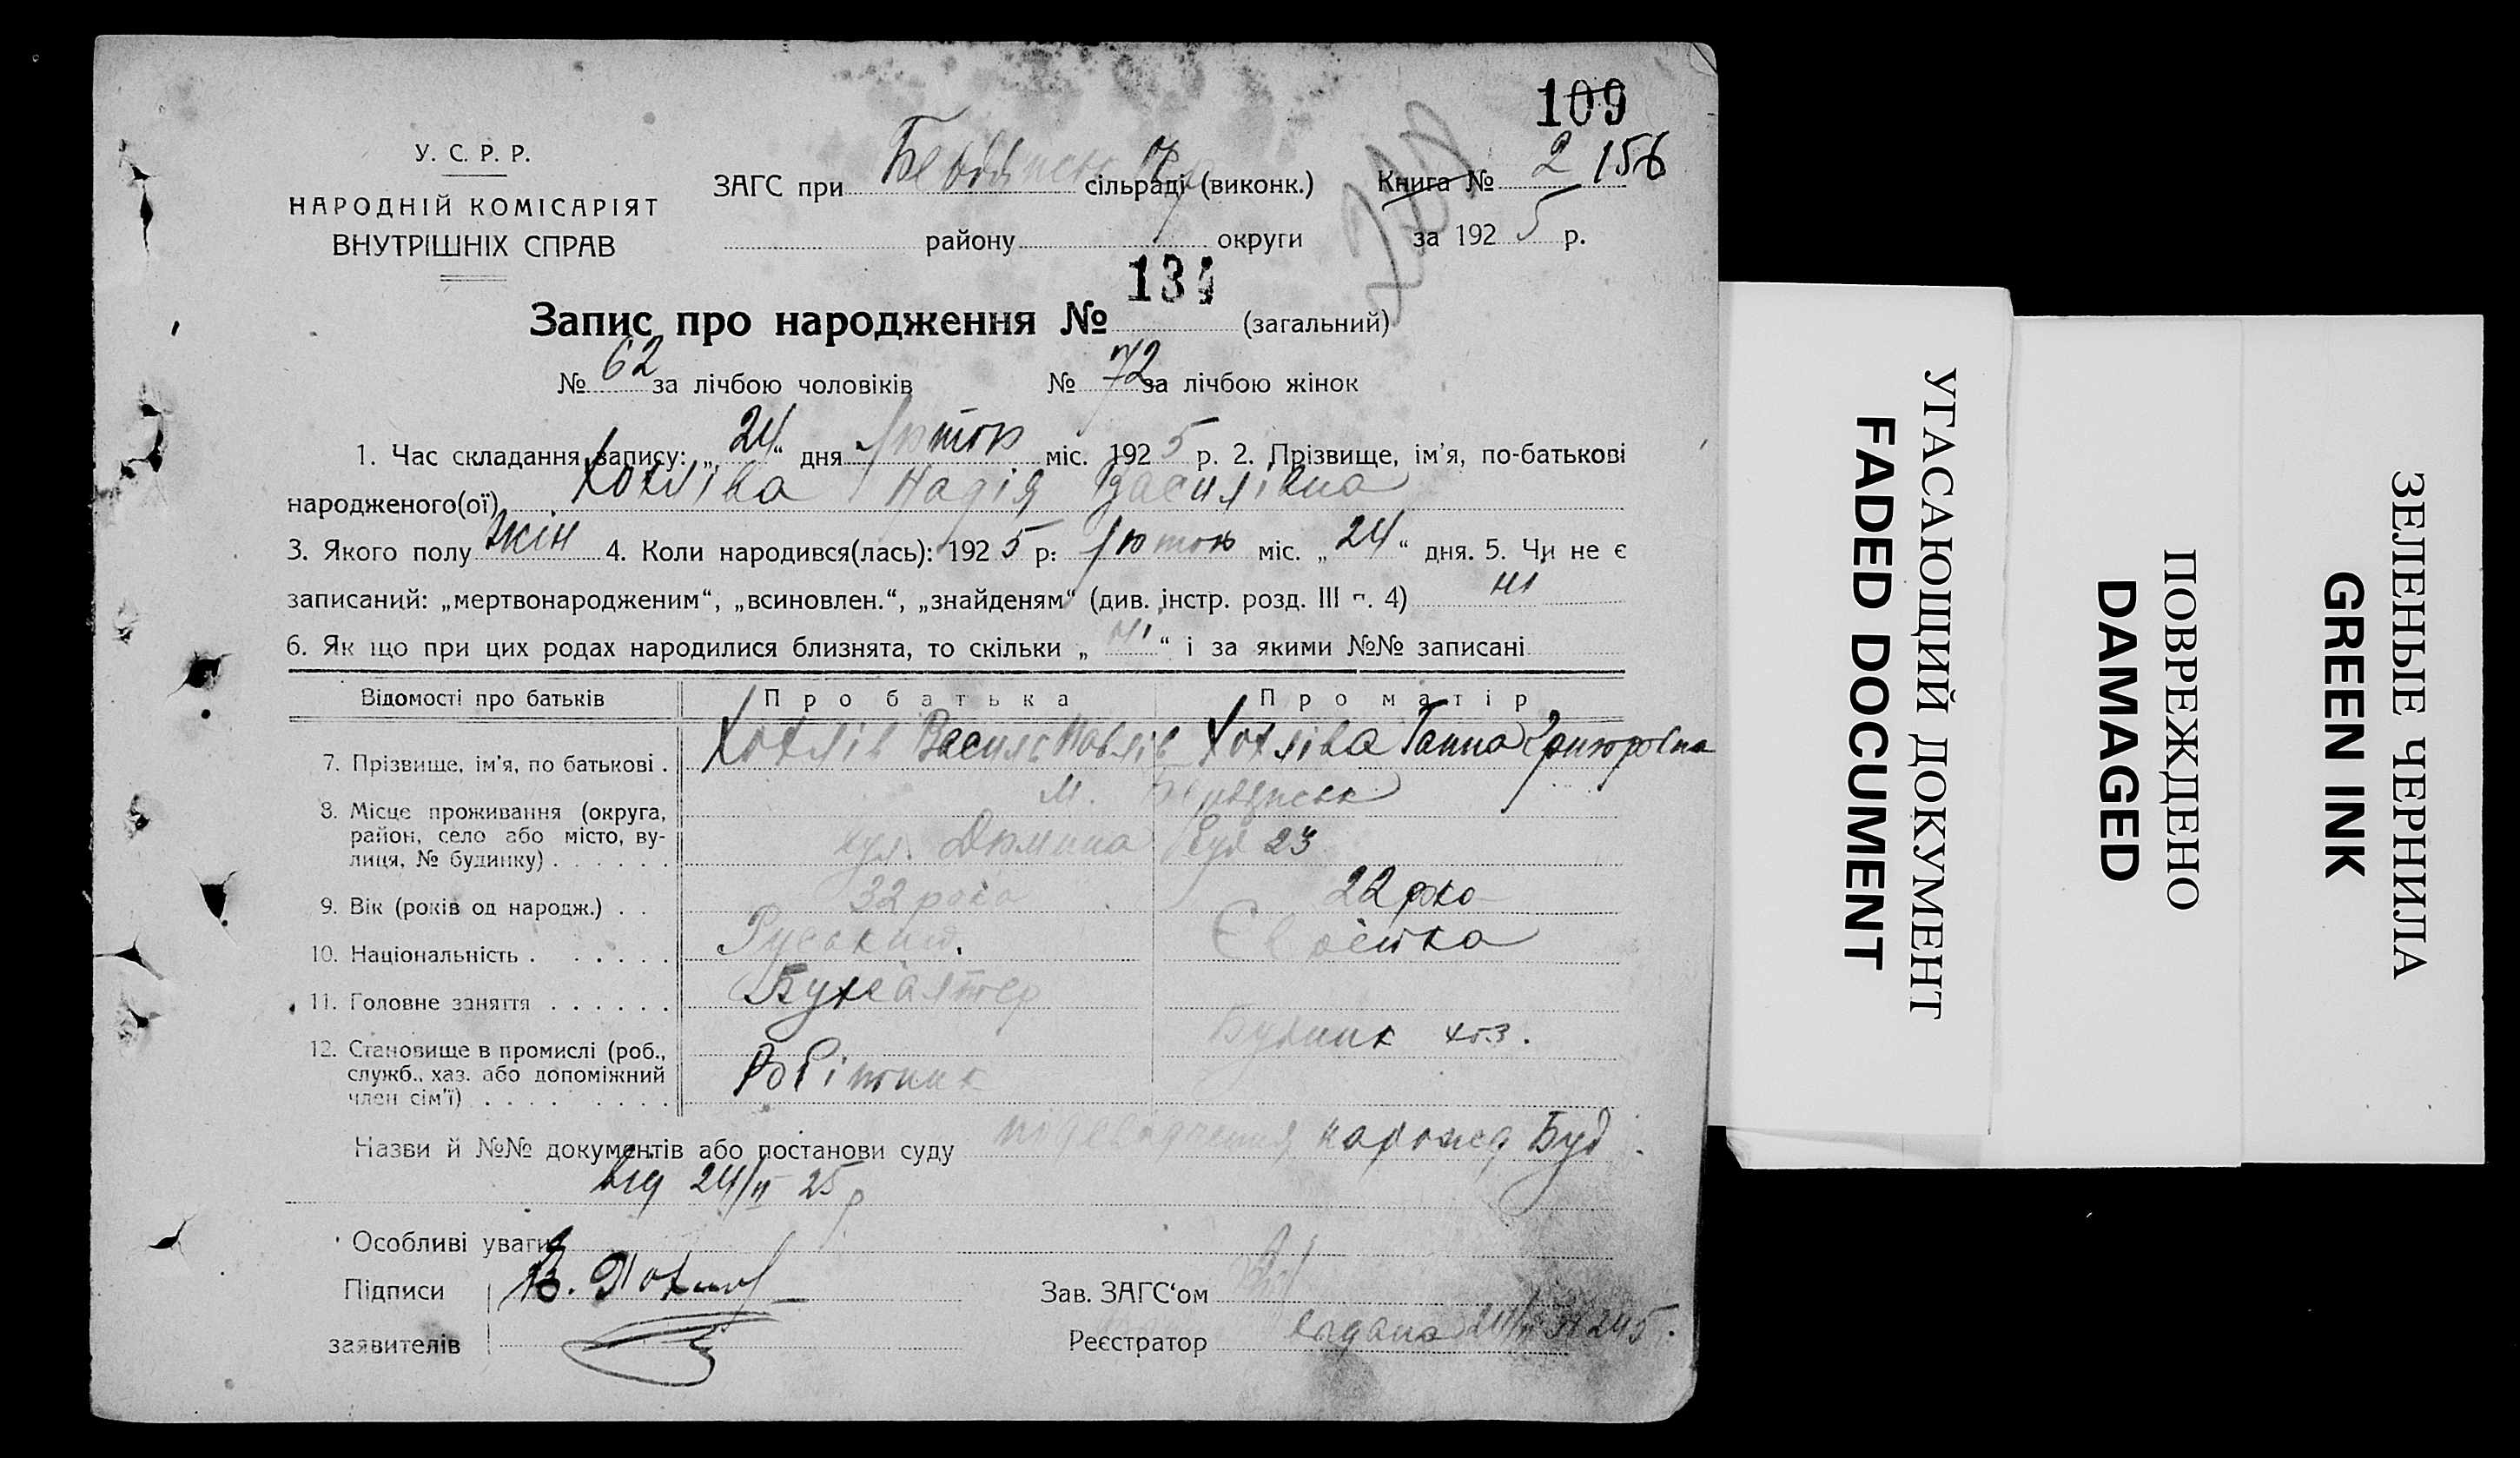 109
У. С. Р. Р.
НАРОДНІЙ КОМІСАРІЯТ
ВНУТРІШНІХ СПРАВ
ЗАГС при сільраді (виконк.)
Книга № 2 156
району округи
за 1925 р.
Запис про народження № 134 (загальний)
№ 62 за лічбою чоловіків № 72 за лічбою жінок
1. Час складання запису: „24“ дня Лютою міс. 1925 р. 2. Прізвище, ім'я, по-батькові
народженого(ої) Хохліва Надія Василівна
3. Якого полу жін 4. Коли народився(лась): 1925 р: Лютою міс. „24“ дня. 5. Чи не є
записаний: „мертвонародженим“, „всиновлен.“, „знайденям“ (див. інстр. розд. III п. 4) ні
6. Як що при цих родах народилися близнята, то скільки „ні“ і за якими №№ записані
Відомості про батьків Про батька Про матір
7. Прізвище, ім'я, по батькові . Хохлів Василь Павлів Хохліва Ганна
8. Місце проживання (округа, м. Бердянськ
район, село або місто, ву-
лиця, № будинку) . . . . . . вул. Дюміна буд 23
9. Вік (років од народж.) . . 32 рока 22 рко
10. Національність . . . . . . Руський. Євреїтка
11. Головне заняття . . . . . . Бухгалтер
12. Становище в промислі (роб.,
служб., хаз. або допоміжний Робітник
член сім'ї) . . . . . . . .
Назви й №№ документів або постанови суду народж Буд.
від 24/II 25 р
Особливі уваги
Підписи
заявителів
Зав. ЗАГС'ом
Реєстратор видана 24/II № 245.
УГАСАЮЩИЙ ДОКУМЕНТ
FADED DOCUMENT
ПОВРЕЖДЕНО
DAMAGED
ЗЕЛЕНЫЕ ЧЕРНИЛА
GREEN INK